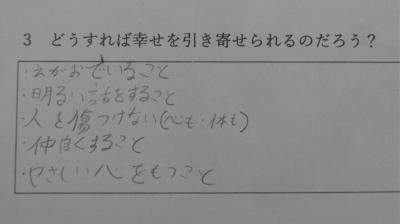 3 どうすれば幸せを引き寄せられるのだろう？
・えがおでいること
・明るい話をすること
・人を傷つけない(心も・体も)
・仲良くすること
・やさしい心をもつこと